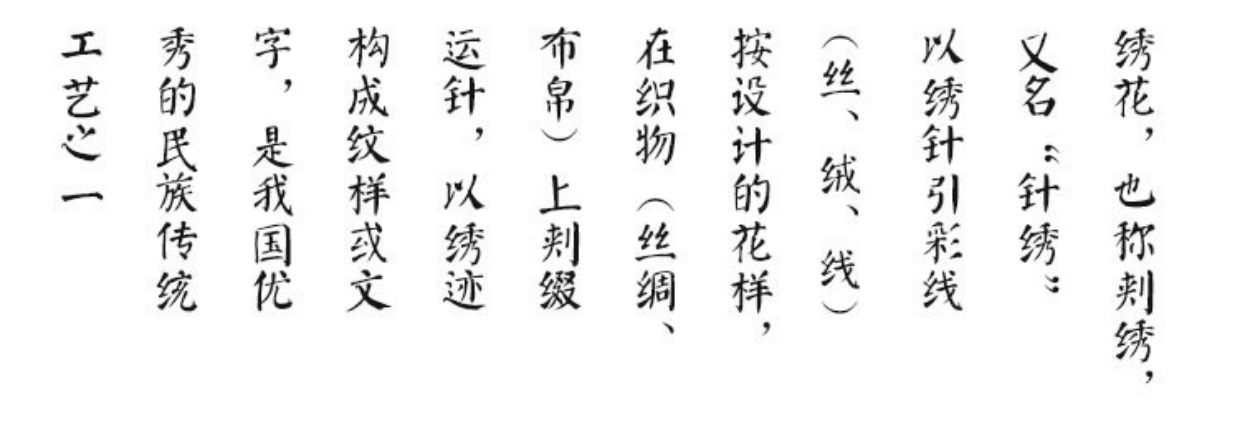 绣花，也称刺绣，
又名“针绣”
以绣针引彩线
（丝、绒、线）
按设计的花样，
在织物（丝绸、
布帛）上刺缀
运针，以绣迹
构成纹样或文
字，是我国优
秀的民族传统
工艺之一